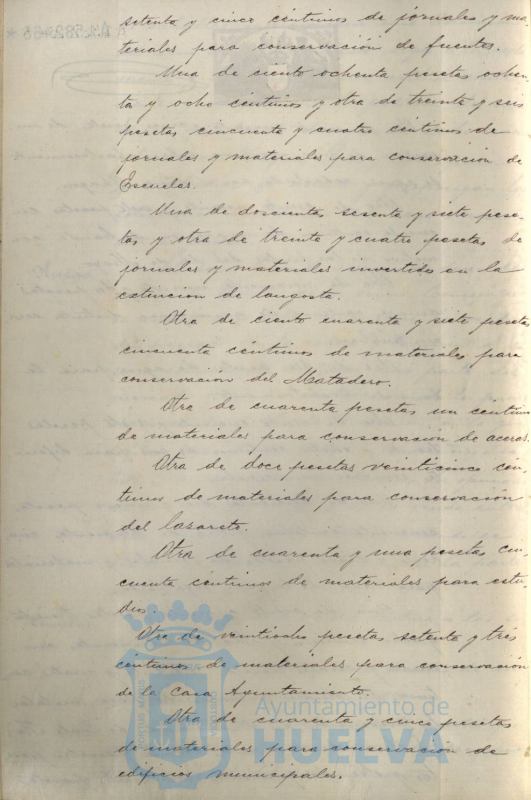 setenta y cinco céntimos de jornales y ma-
teriales para conservación de fuentes.
Una de ciento ochenta pesetas ochen-
ta y ocho céntimos y otra de treinta y seis
pesetas cincuenta y cuatro céntimos de
jornales y materiales para conservación de
Escuelas.
Una de doscientas sesenta y siete pese-
tas y otra de treinta y cuatro pesetas de
jornales y materiales invertidos en la
extinción de langosta.
Otra de ciento cuarenta y siete pesetas
cincuenta céntimos de materiales para
conservación del Matadero.
Otra de cuarenta pesetas un céntimo
de materiales para conservación de aceras.
Otra de doce pesetas veinticinco cén-
timos de materiales para conservación
del lazareto.
Otra de cuarenta y una pesetas cin-
cuenta céntimos de materiales para estu-
dios.
Otra de veintiocho pesetas setenta y tres
céntimos de materiales para conservación
de la Casa Ayuntamiento.
Otra de cuarenta y cinco pesetas
de materiales para conservación de
edificios municipales.
Ayuntamiento de
HUELVA